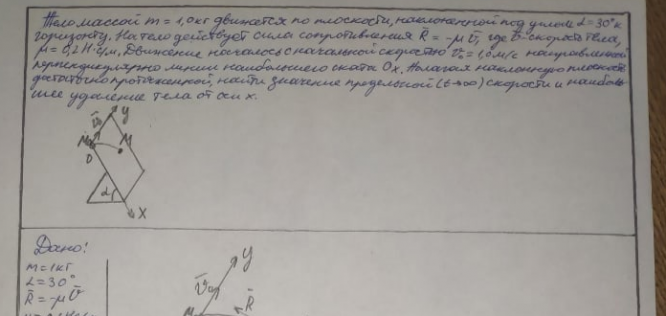 Тело массой m = 1,0 кг движется по плоскости, наклоненной под углом α=30° к
горизонту. На тело действует сила сопротивления R̄ = -μ v̄, где v̄-скорость тела,
μ = 0,2 Н·с/м. Движение началось с начальной скоростью v̄₀ = 1,0 м/с направленной
перпендикулярно линии наибольшего ската Ox. Полагая наклонную плоскость
достаточно протяженной, найти значение предельной (t→∞) скорости и наиболь-
шее удаление тела от оси x.
y
v̄₀
M₀ M
O
α
X
Дано:
m = 1кг
α = 30°
R̄ = -μ v̄
y
v̄₀
R̄
M